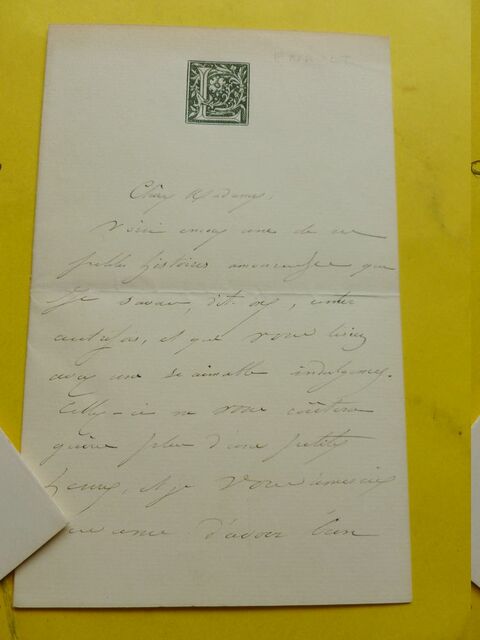 L
Chère Madame,
Voici encore une de ces
petites histoires amoureuses que
je savais, dit-on, conter
autrefois, et que vous lisiez
avec une si aimable indulgence.
Celle-ci ne vous coûtera
guère plus d'une petite
heure, et je vous
d'avoir bien